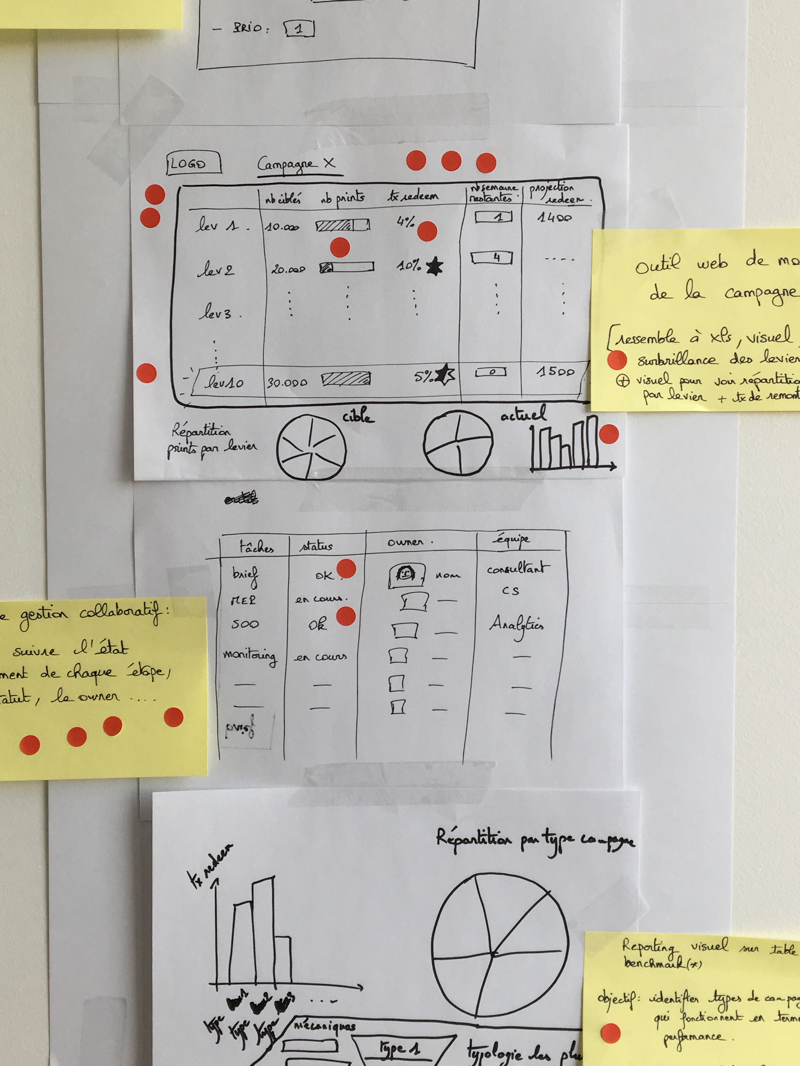 - BRIO: 1
LOGO Campagne X
nb ciblés nb prints tx redeem nb semaine restantes projection redeem
lev 1. 10.000 4% 1 1400
lev 2 20.000 10% 4 ----
lev 3
lev 10 30.000 5% 0 1500
Répartition
prints par levier
cible
actuel
Outil web de mo
de la campagne
[ressemble à xls, visuel,
surbrillance des levie
⊕ visuel pour voir répartitio
par levier + tx de remont
tâches status owner. équipe
brief OK. nom consultant
MEP en cours. CS
SOO Ok Analytics
monitoring en cours
e gestion collaboratif:
suivre l'état
ment de chaque étape,
tatut, le owner ....
Répartition par type campagne
tx redeem
mécaniques
type 1
typologie les plu
Reporting visuel sur table
benchmark(x)
objectif: identifier types de campa
qui fonctionnent en term
performance.